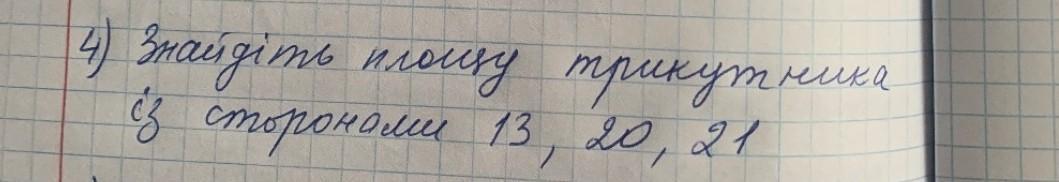 4) Знайдіть площу трикутника
із сторонами 13, 20, 21